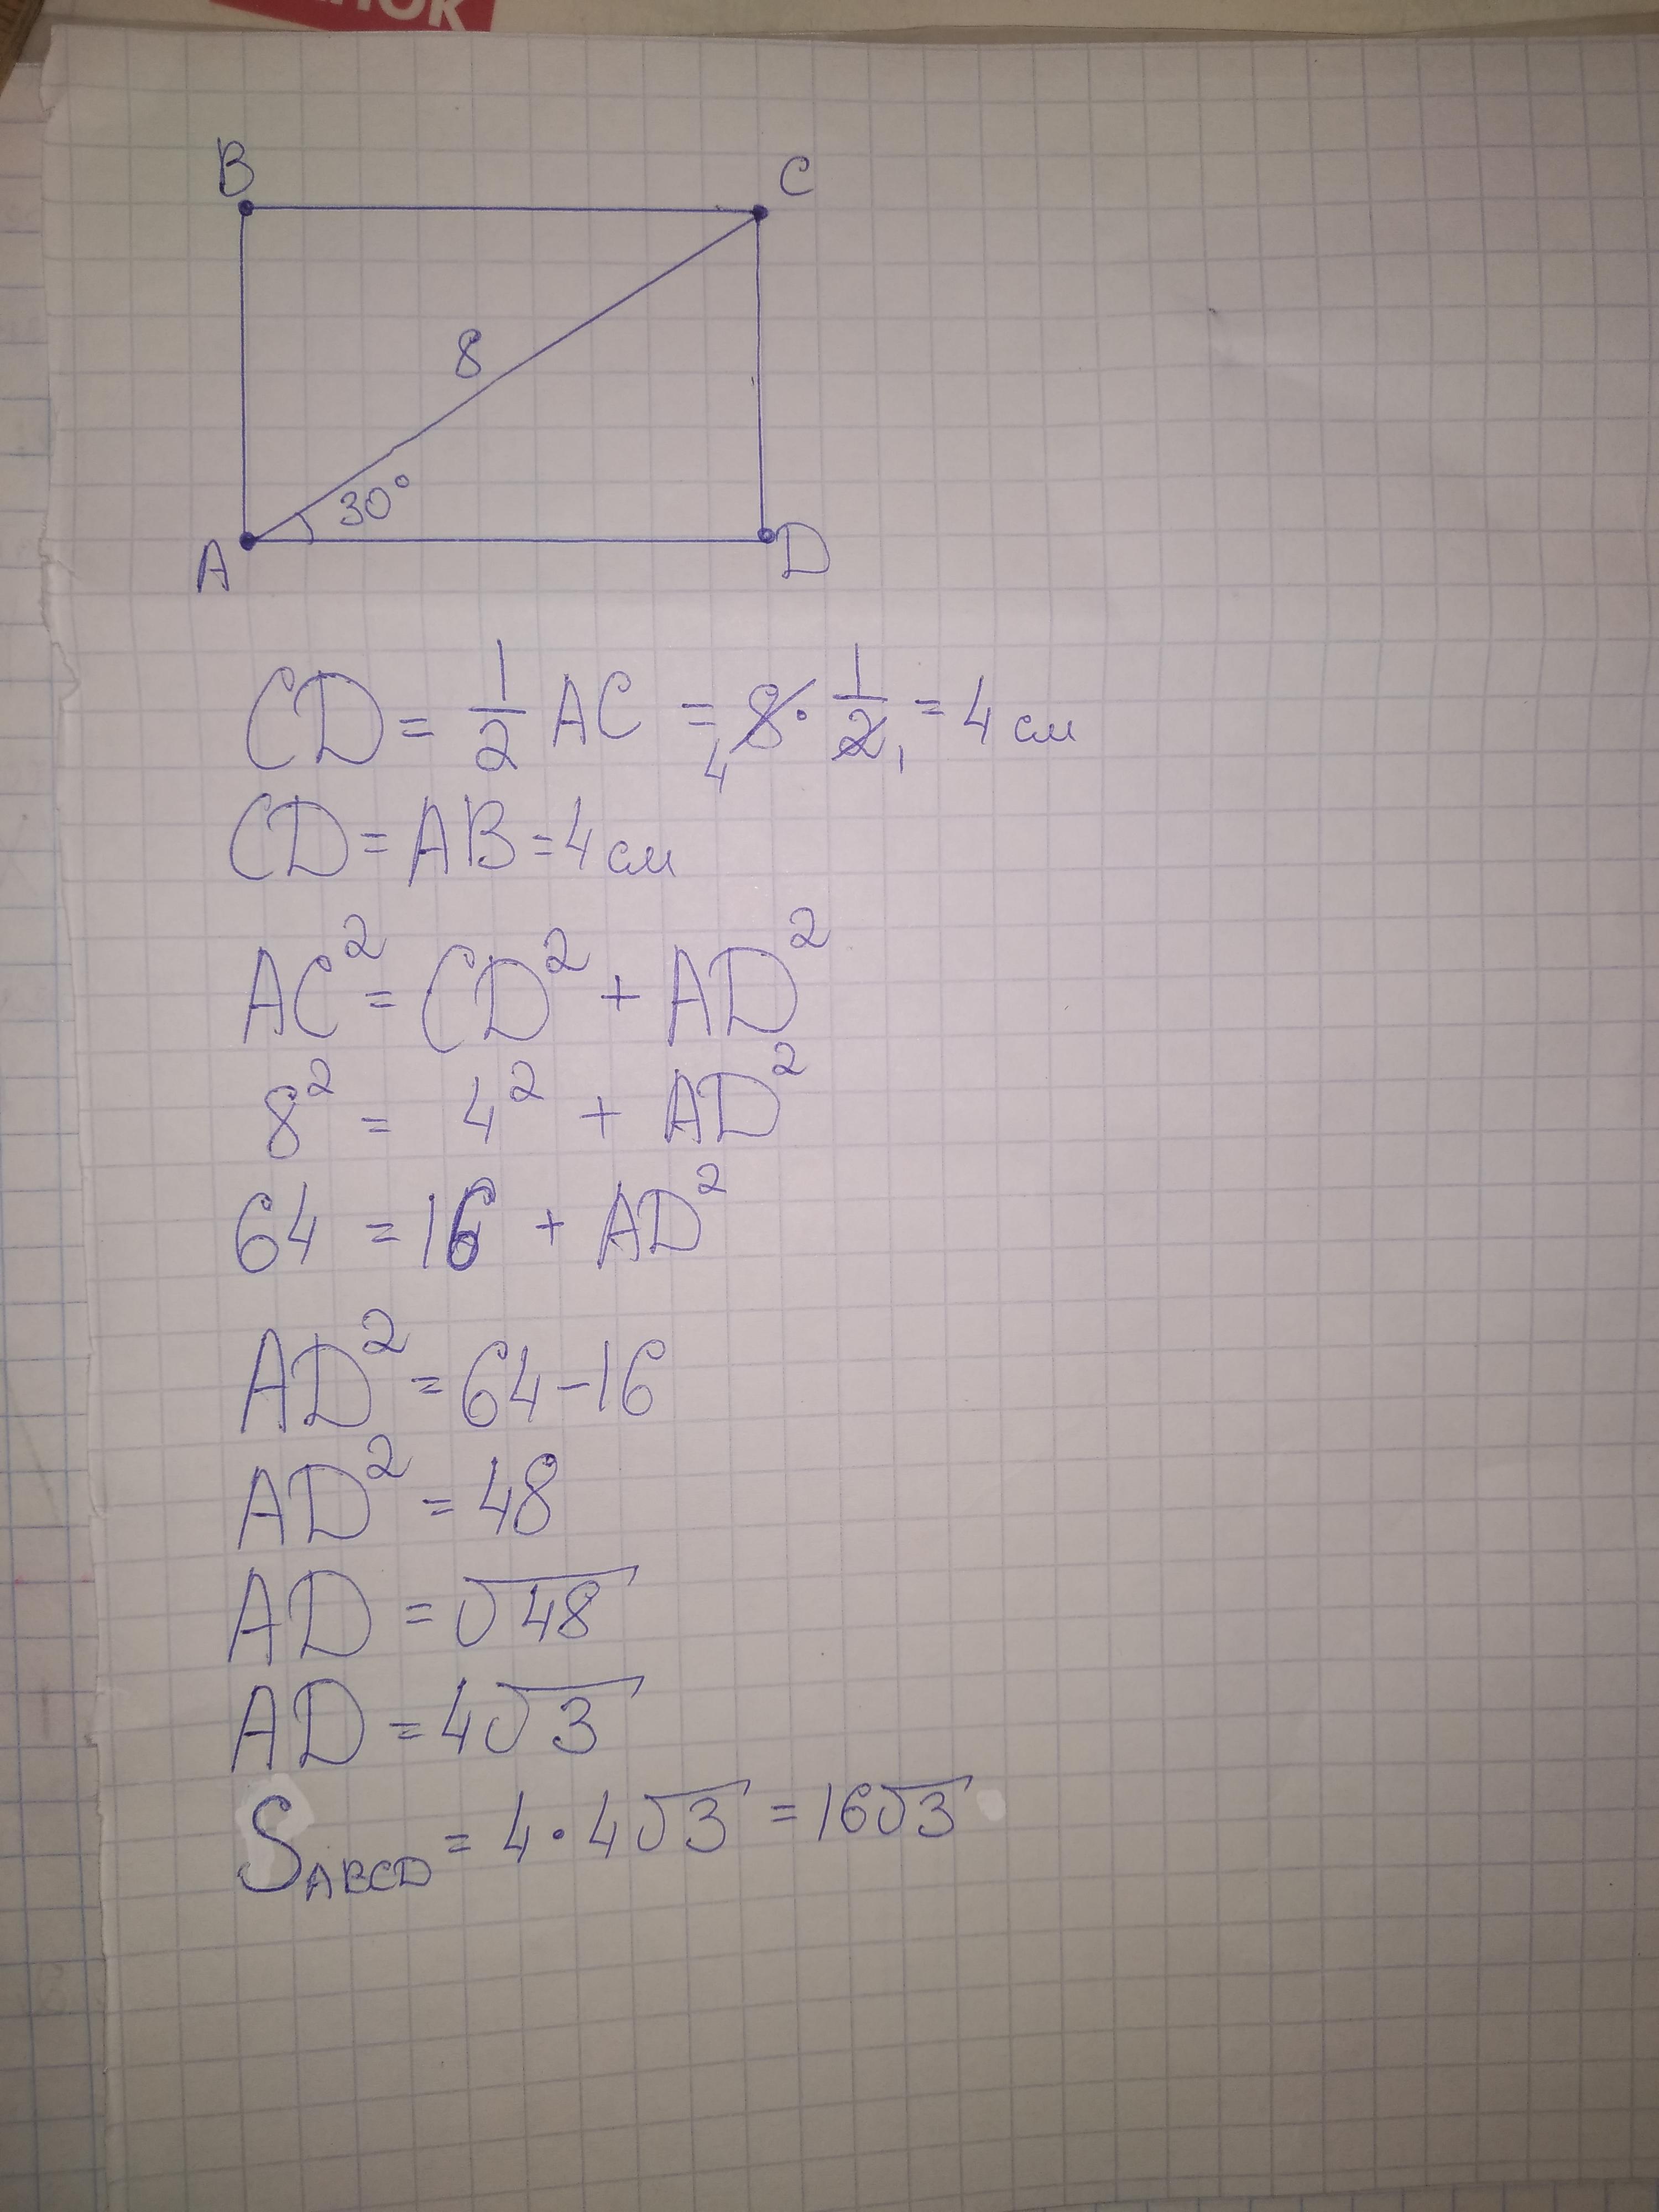 B
C
8
30°
A
D
CD = 1/2 AC = 8 · 1/2 = 4 см
4 1
CD = AB = 4 см
AC² = CD² + AD²
8² = 4² + AD²
64 = 16 + AD²
AD² = 64 - 16
AD² = 48
AD = √48
AD = 4√3
S ABCD = 4 · 4√3 = 16√3